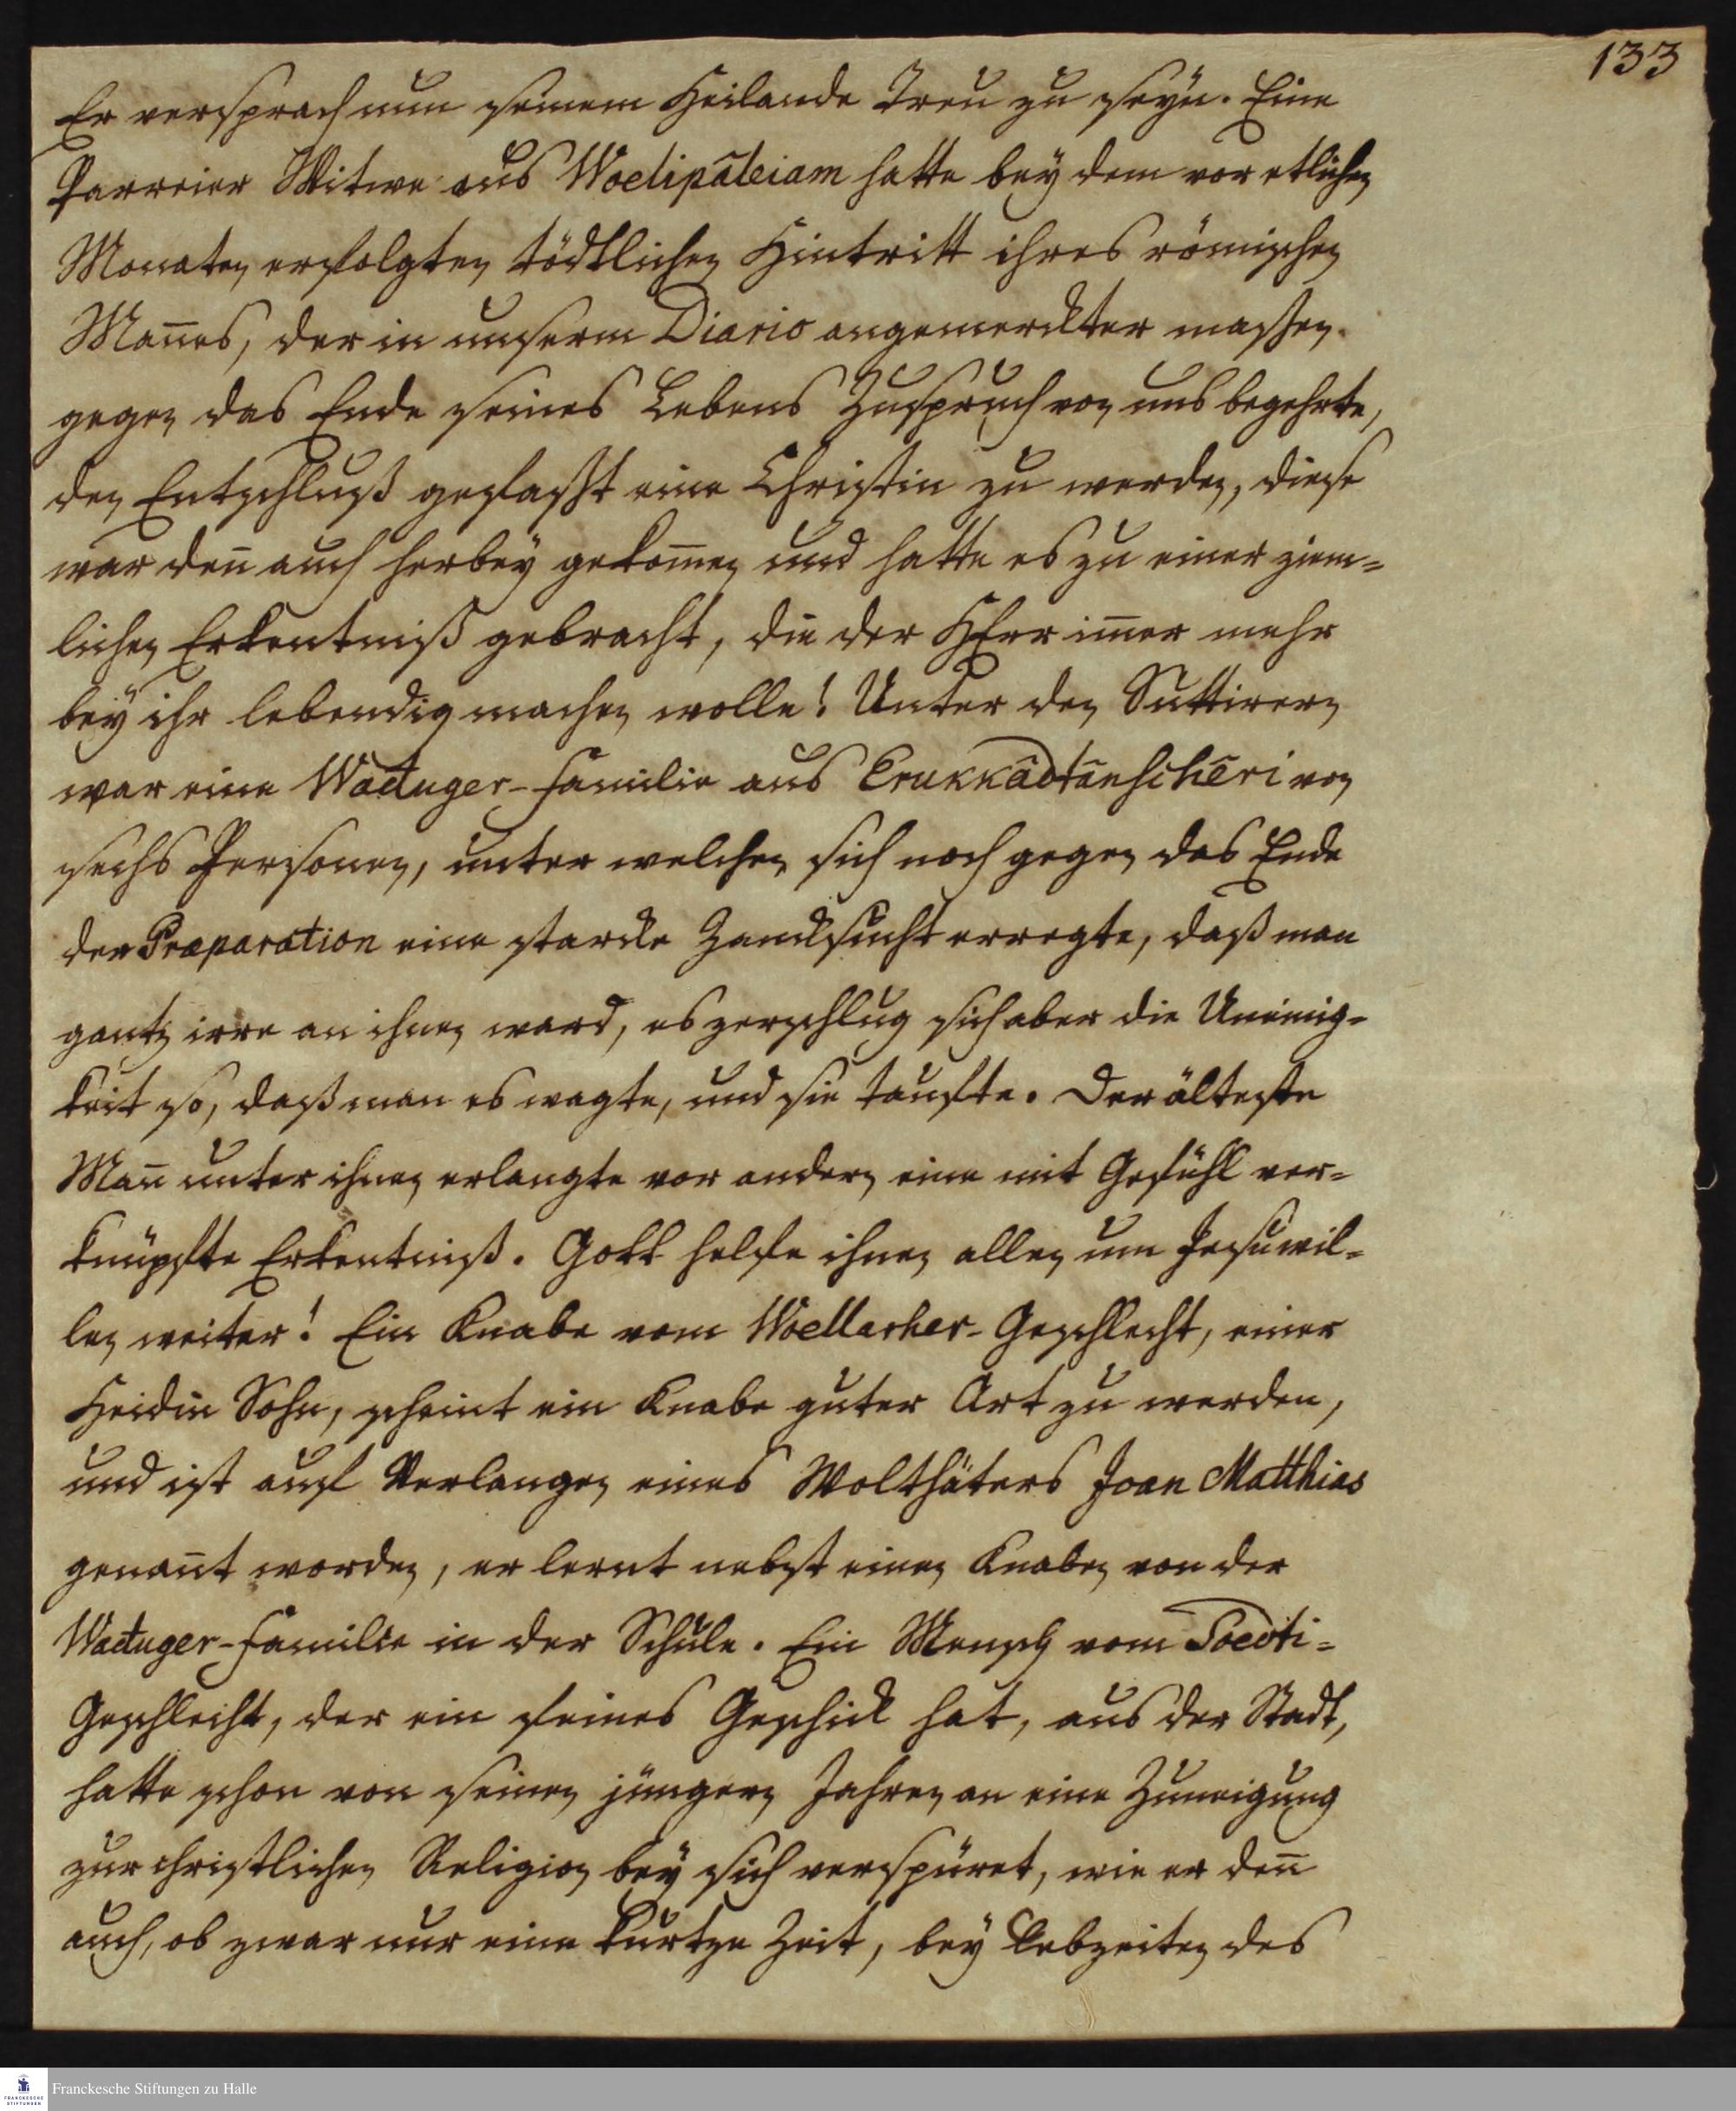 133
Er versprach nun seinem Heilande Treu zu seyn. Eine
Parreier Witwe aus Woelipâleiam hatte bey dem vor etlichen
Monaten erfolgten tödtlichen Hintritt ihres römischen
Mañes, der in unserm Diario angemerckter maßen
gegen das Ende seines Lebens Zuspruch von uns begehrte,
den Entschluß gefaßt eine Christin zu werden, diese
war deñ auch herbey gekom̄en und hatte es zu einer ziem=
lichen Erkentniß gebracht, die der HErr im̄er mehr
bey ihr lebendig machen wolle! Unter den Suttirern
war eine Waduger-Familie aus Erukkâdtânschēri von
sechs Personen, unter welchen sich noch gegen das Ende
der Præparation eine starcke Zancksucht erregte, daß man
gantz irre an ihnen ward, es zerschlug sich aber die Uneinig=
keit so, daß man es wagte, und sie taufte. Der älteste
Mañ unter ihnen erlangte vor andern eine mit Gefühl ver=
knüpfte Erkentniß. Gott helfe ihnen allen um Jesu wil=
len weiter! Ein Knabe vom Woellarher-Geschlecht, einer
Heidin Sohn, scheint ein Knabe guter Art zu werden,
und ist auf Verlangen eines Wolthäters Joan Matthias
genañt worden, er lernt nebst einen Knaben von der
Waduger-Familie in der Schule. Ein Mensch vom Soedti=
Geschlecht, der ein feines Geschick hat, aus der Stadt,
hatte schon von seinen jüngern Jahren an eine Zuneigung
zur christlichen Religion bey sich verspüret, wie er deñ
auch, ob zwar nur eine kurtze Zeit, bey Lebzeiten des
Franckesche Stiftungen zu Halle
FRANCKESCHE
STIFTUNGEN